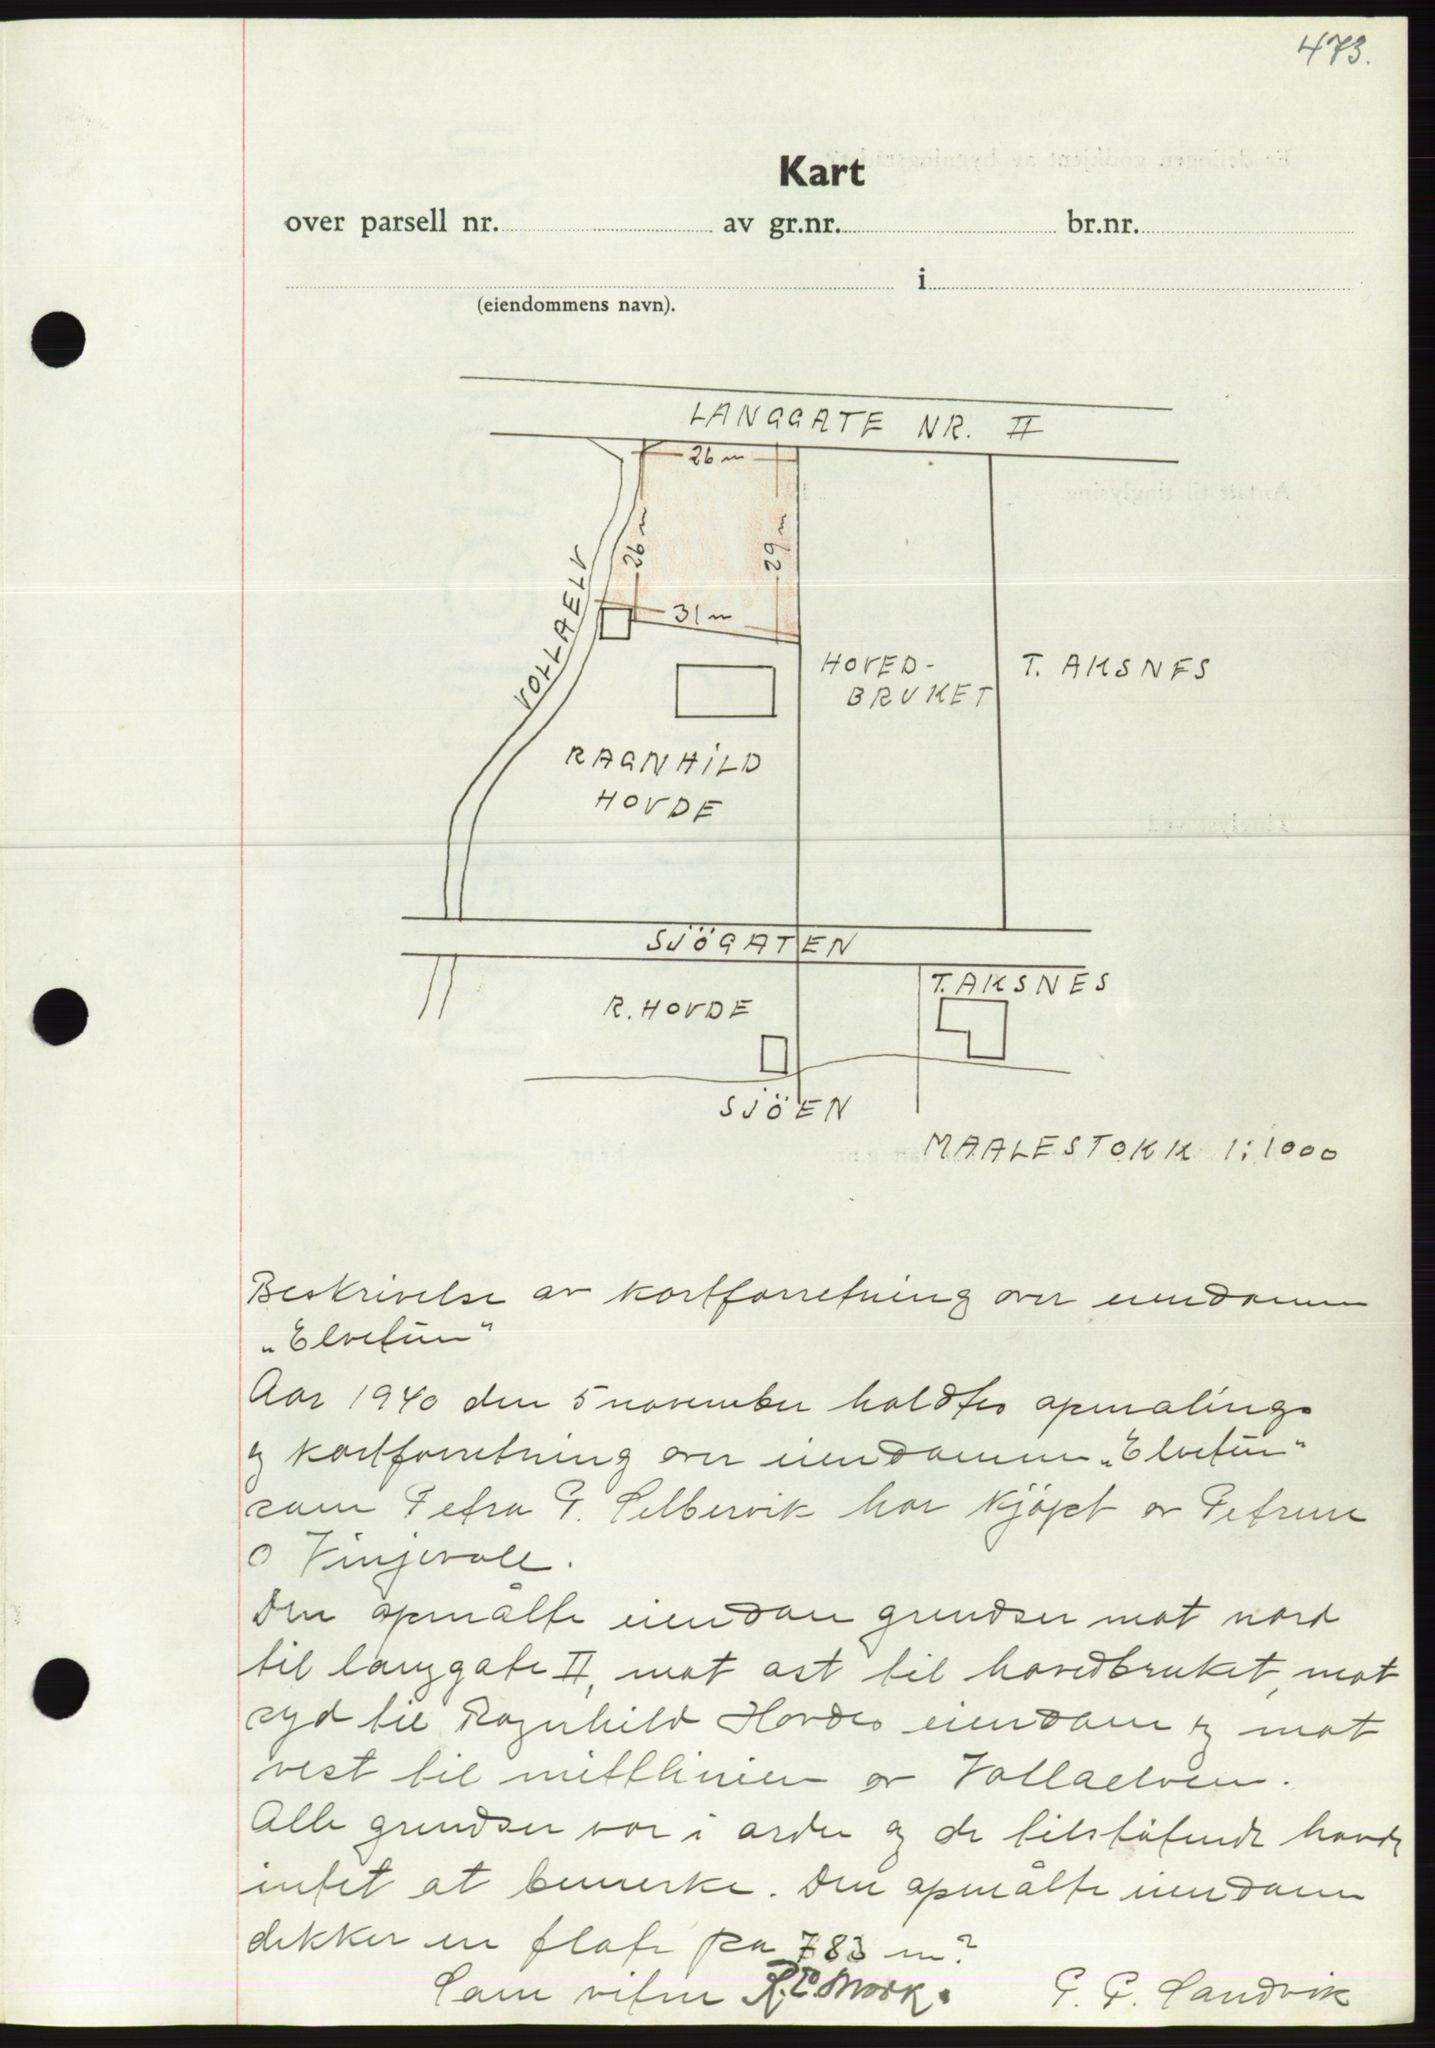 473.
Kart
over parsell nr. av gr.nr. br.nr.
i
(eiendommens navn).
LANGGATE NR. II
26 m
26 m
29 m
31 m
VOLLAELV
HOVED-
BRUKET
T. AKSNES
RAGNHILD
HOVDE
SJÖGATEN
T. AKSNES
R. HOVDE
SJÖEN
MAALESTOKK 1:1000
Beskrivelse av kartforretning over eiendommen
"Elvetun"
Aar 1940 den 5 november holdtes opmaling-
og kartforretning over eiendommen "Elvetun"
som Petra P. Selbervik har kjöpt av Petrine
O Vinjevoll.
Den opmålte eiendom grendser mot nord
til langgate II, mot ost til hovedbruket, mot
syd til Ragnhild Hovdes eiendom og mot
vest til mittlinien av Vollaelven.
Alle grendser var i orden og de tilstötende havde
intet at bemerke. Den opmålte eiendom
dekker en flate på 783 m²
Som vitne R. Mork. P. P. Sandvik